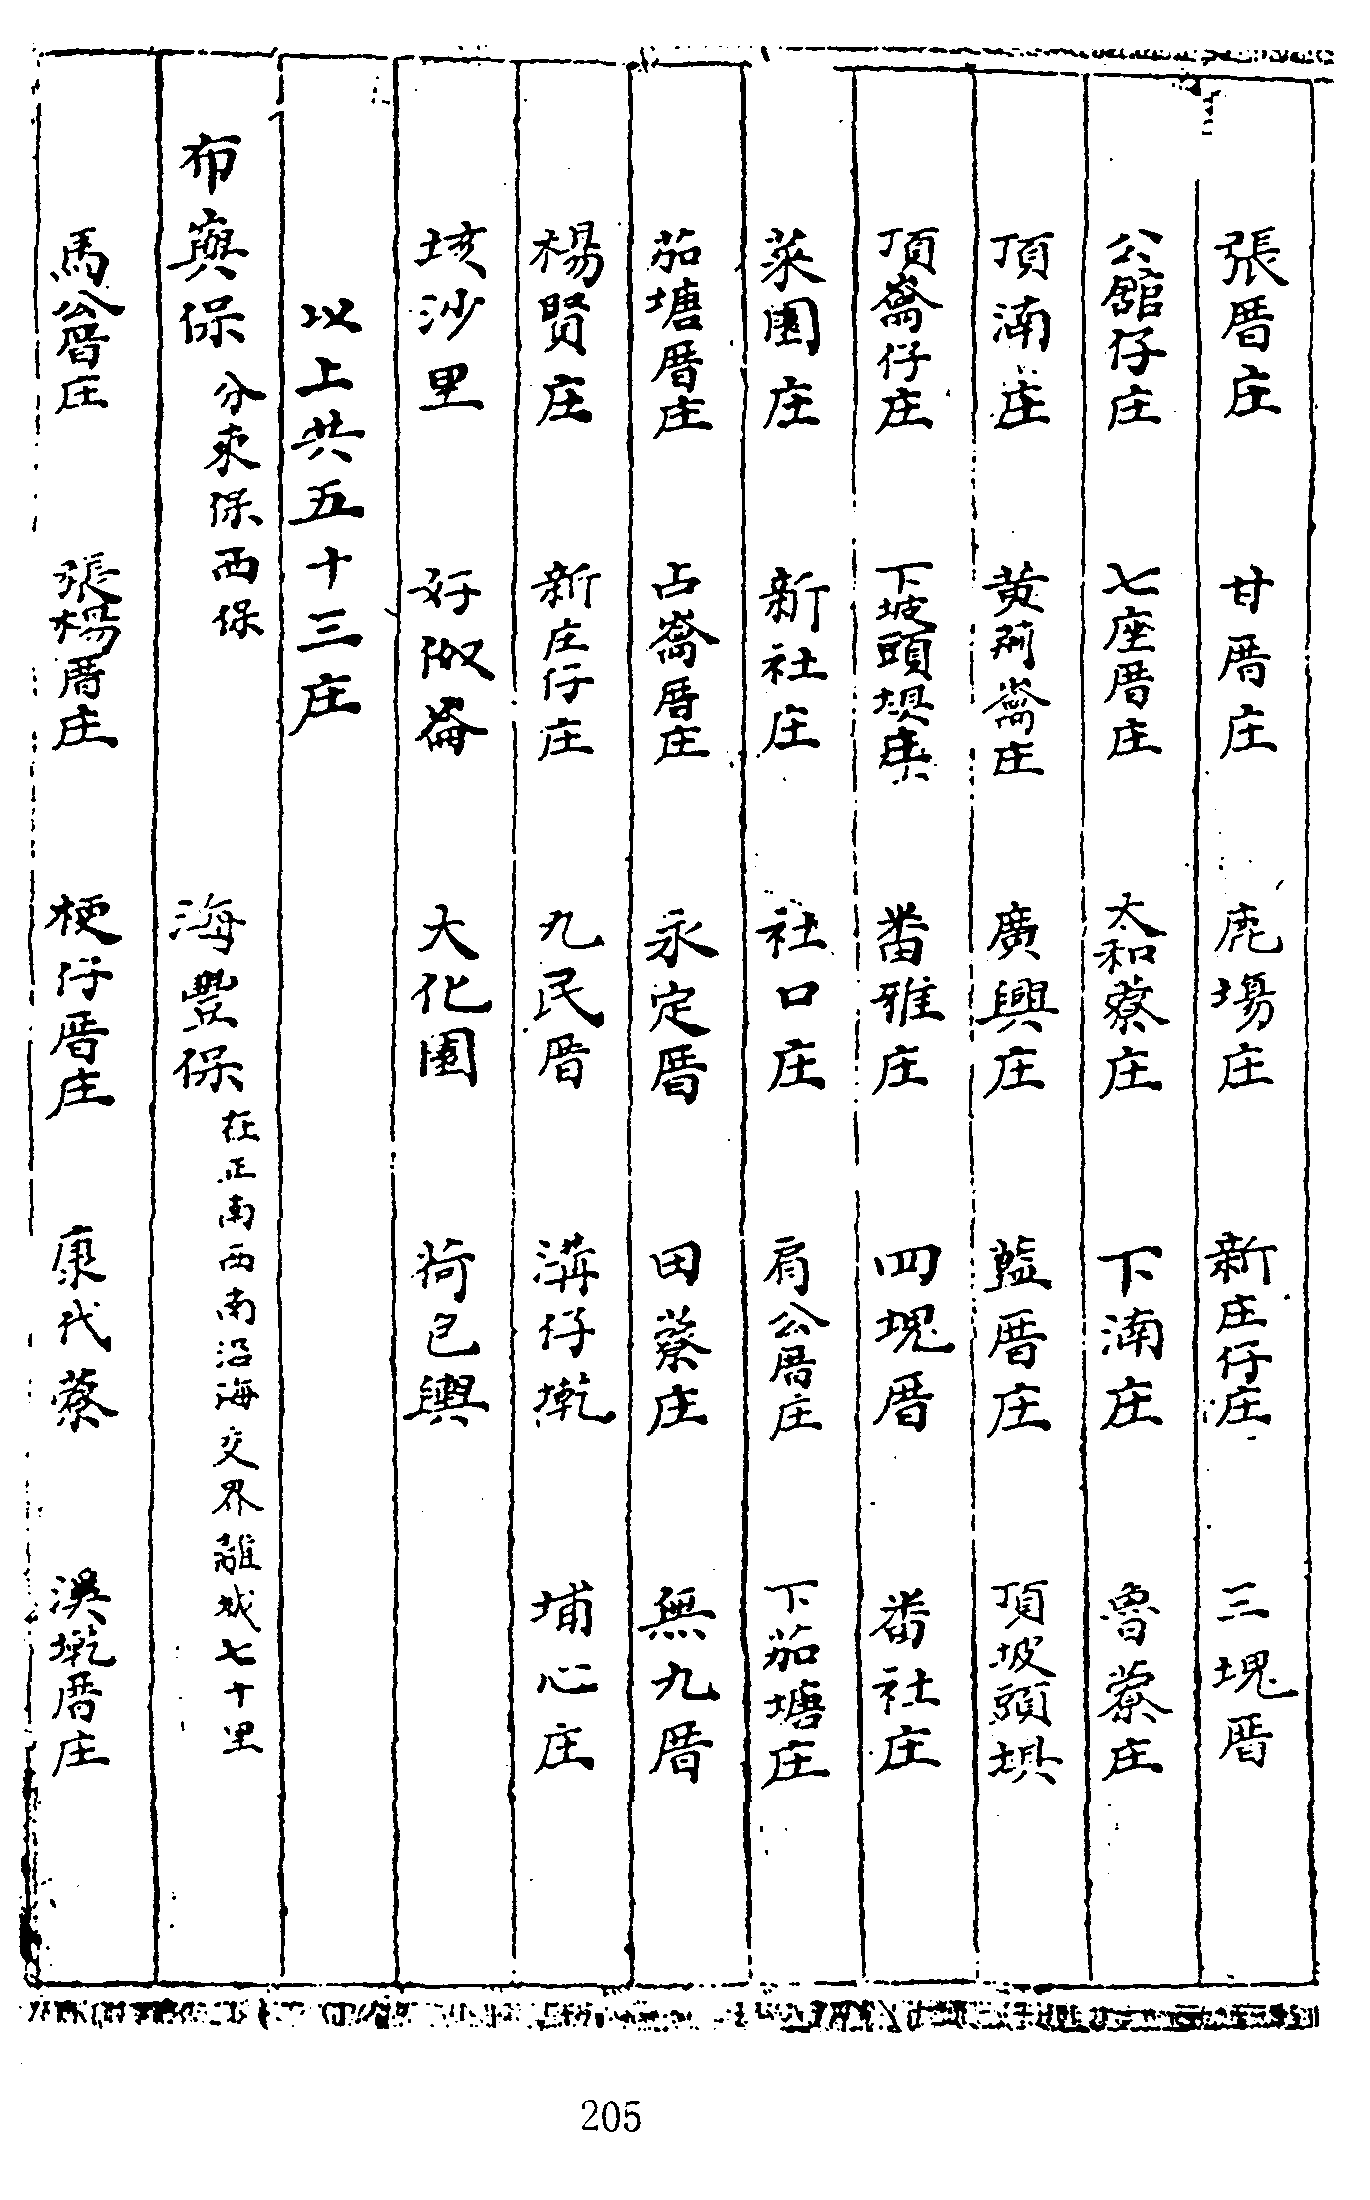 張厝庄　甘厝庄　鹿塲庄　新庄仔庄　三塊厝
公舘仔庄　七座厝庄　太和藔庄　下湳庄　魯藔庄
頂湳庄　黄荊崙庄　廣興庄　藍厝庄　頂坡頭埧
頂崙仔庄　下坡頭埧庄　番雅庄　四塊厝　番社庄
菜園庄　新社庄　社口庄　肩公厝庄　下茄塘庄
茄塘厝庄　占崙厝庄　永定厝　田藔庄　無九厝
楊賢庄　新庄仔庄　九民厝　溝仔墘　埔心庄
垓沙里　好收崙　大化園　荷包輿
以上共五十三庄
布嶼保　分東保西保　海豐保　在正南西南沿海交界離城七十里
馬公厝庄　張楊厝庄　梗仔厝庄　康代藔　溪墘厝庄
205